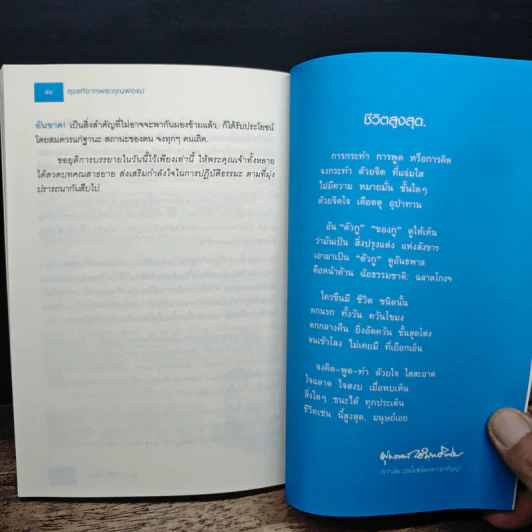 ๕๖ สุขแท้จากพระคุณพ่อแม่
อันขาด! เป็นสิ่งสำคัญที่ไม่อาจจะพากันมองข้ามแล้ว, ก็ได้รับประโยชน์
โดยสมควรแก่ฐานะ สถานะของตน จงทุกๆ คนเถิด.
ขอยุติการบรรยายในวันนี้ไว้เพียงเท่านี้ ให้พระคุณเจ้าทั้งหลาย
ได้สวดบทคณสาธยาย ส่งเสริมกำลังใจในการปฏิบัติธรรมะ ตามที่มุ่ง
ปรารถนากันสืบไป.
ชีวิตสูงสุด.
การกระทำ การพูด หรือการคิด
จงกระทำ ด้วยจิต ที่แจ่มใส
ไม่มีความ หมายมั่น ชั้นใดๆ
ด้วยจิตใจ เดือดดุ อุปาทาน
อัน “ตัวกู” “ของกู” ดูให้เห็น
ว่ามันเป็น สิ่งปรุงแต่ง แห่งสังขาร
เอามาเป็น “ตัวกู” ดูอันธพาล
คือหน้าด้าน ฉ้อธรรมชาติ: ฉลาดโกงฯ
ใครขืนมี ชีวิต ชนิดนั้น
ตกนรก ทั้งวัน ควันโขมง
ตกกลางคืน ยิ่งอัดควัน ขั้นสุดโต่ง
จนเข้าโลง ไม่เคยมี ที่เยือกเย็น
จงคิด-พูด-ทำ ด้วยใจ ใสสะอาด
ใจฉลาด ใจสงบ เมื่อพบเห็น
สิ่งใดๆ ชนะได้ ทุกประเด็น
ชีวิตเช่น นี้สูงสุด, มนุษย์เอย